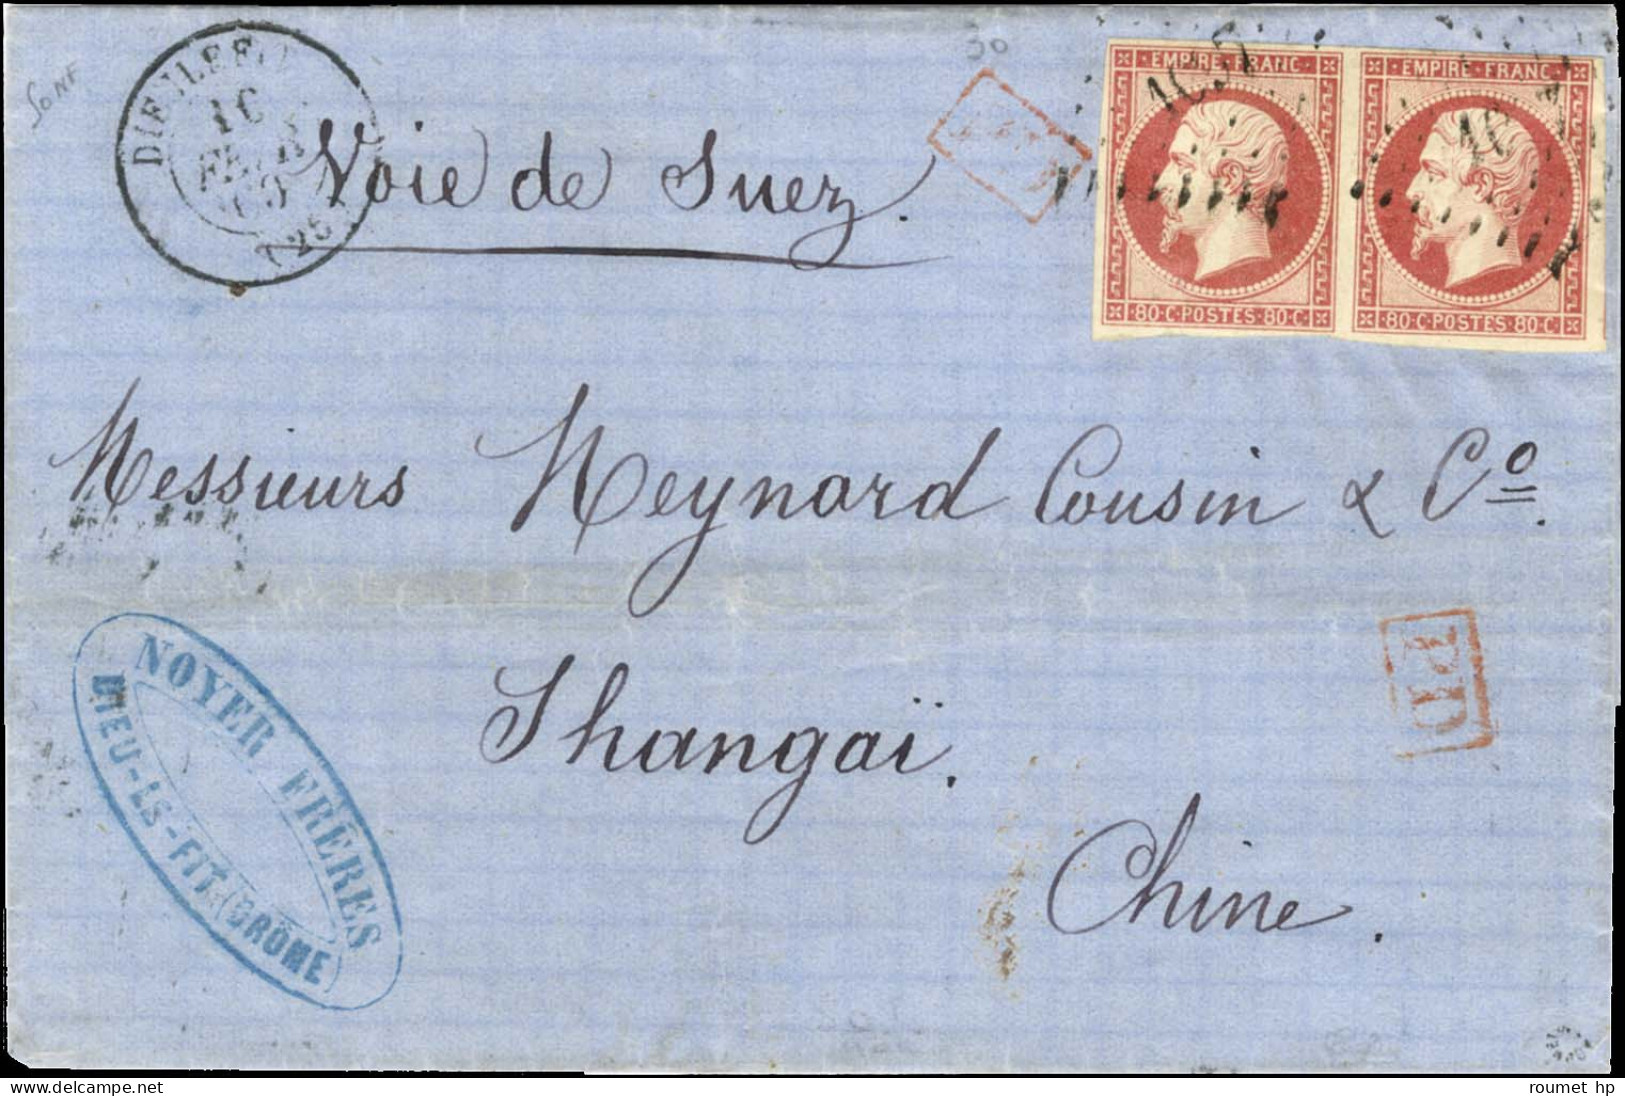 DIEULEFIT
16
FEVR
60
(25)
SONF
30
Voie de Suez.
EMPIRE · FRANC ·
80 · C · POSTES · 80 · C
EMPIRE · FRANC ·
80 · C · POSTES · 80 · C
1057
Messieurs Meynard Cousin & Co.
Shangaï.
Chine.
NOYER FRÈRES
DIEU-LE-FIT. (DROME)
PD
roumet hp